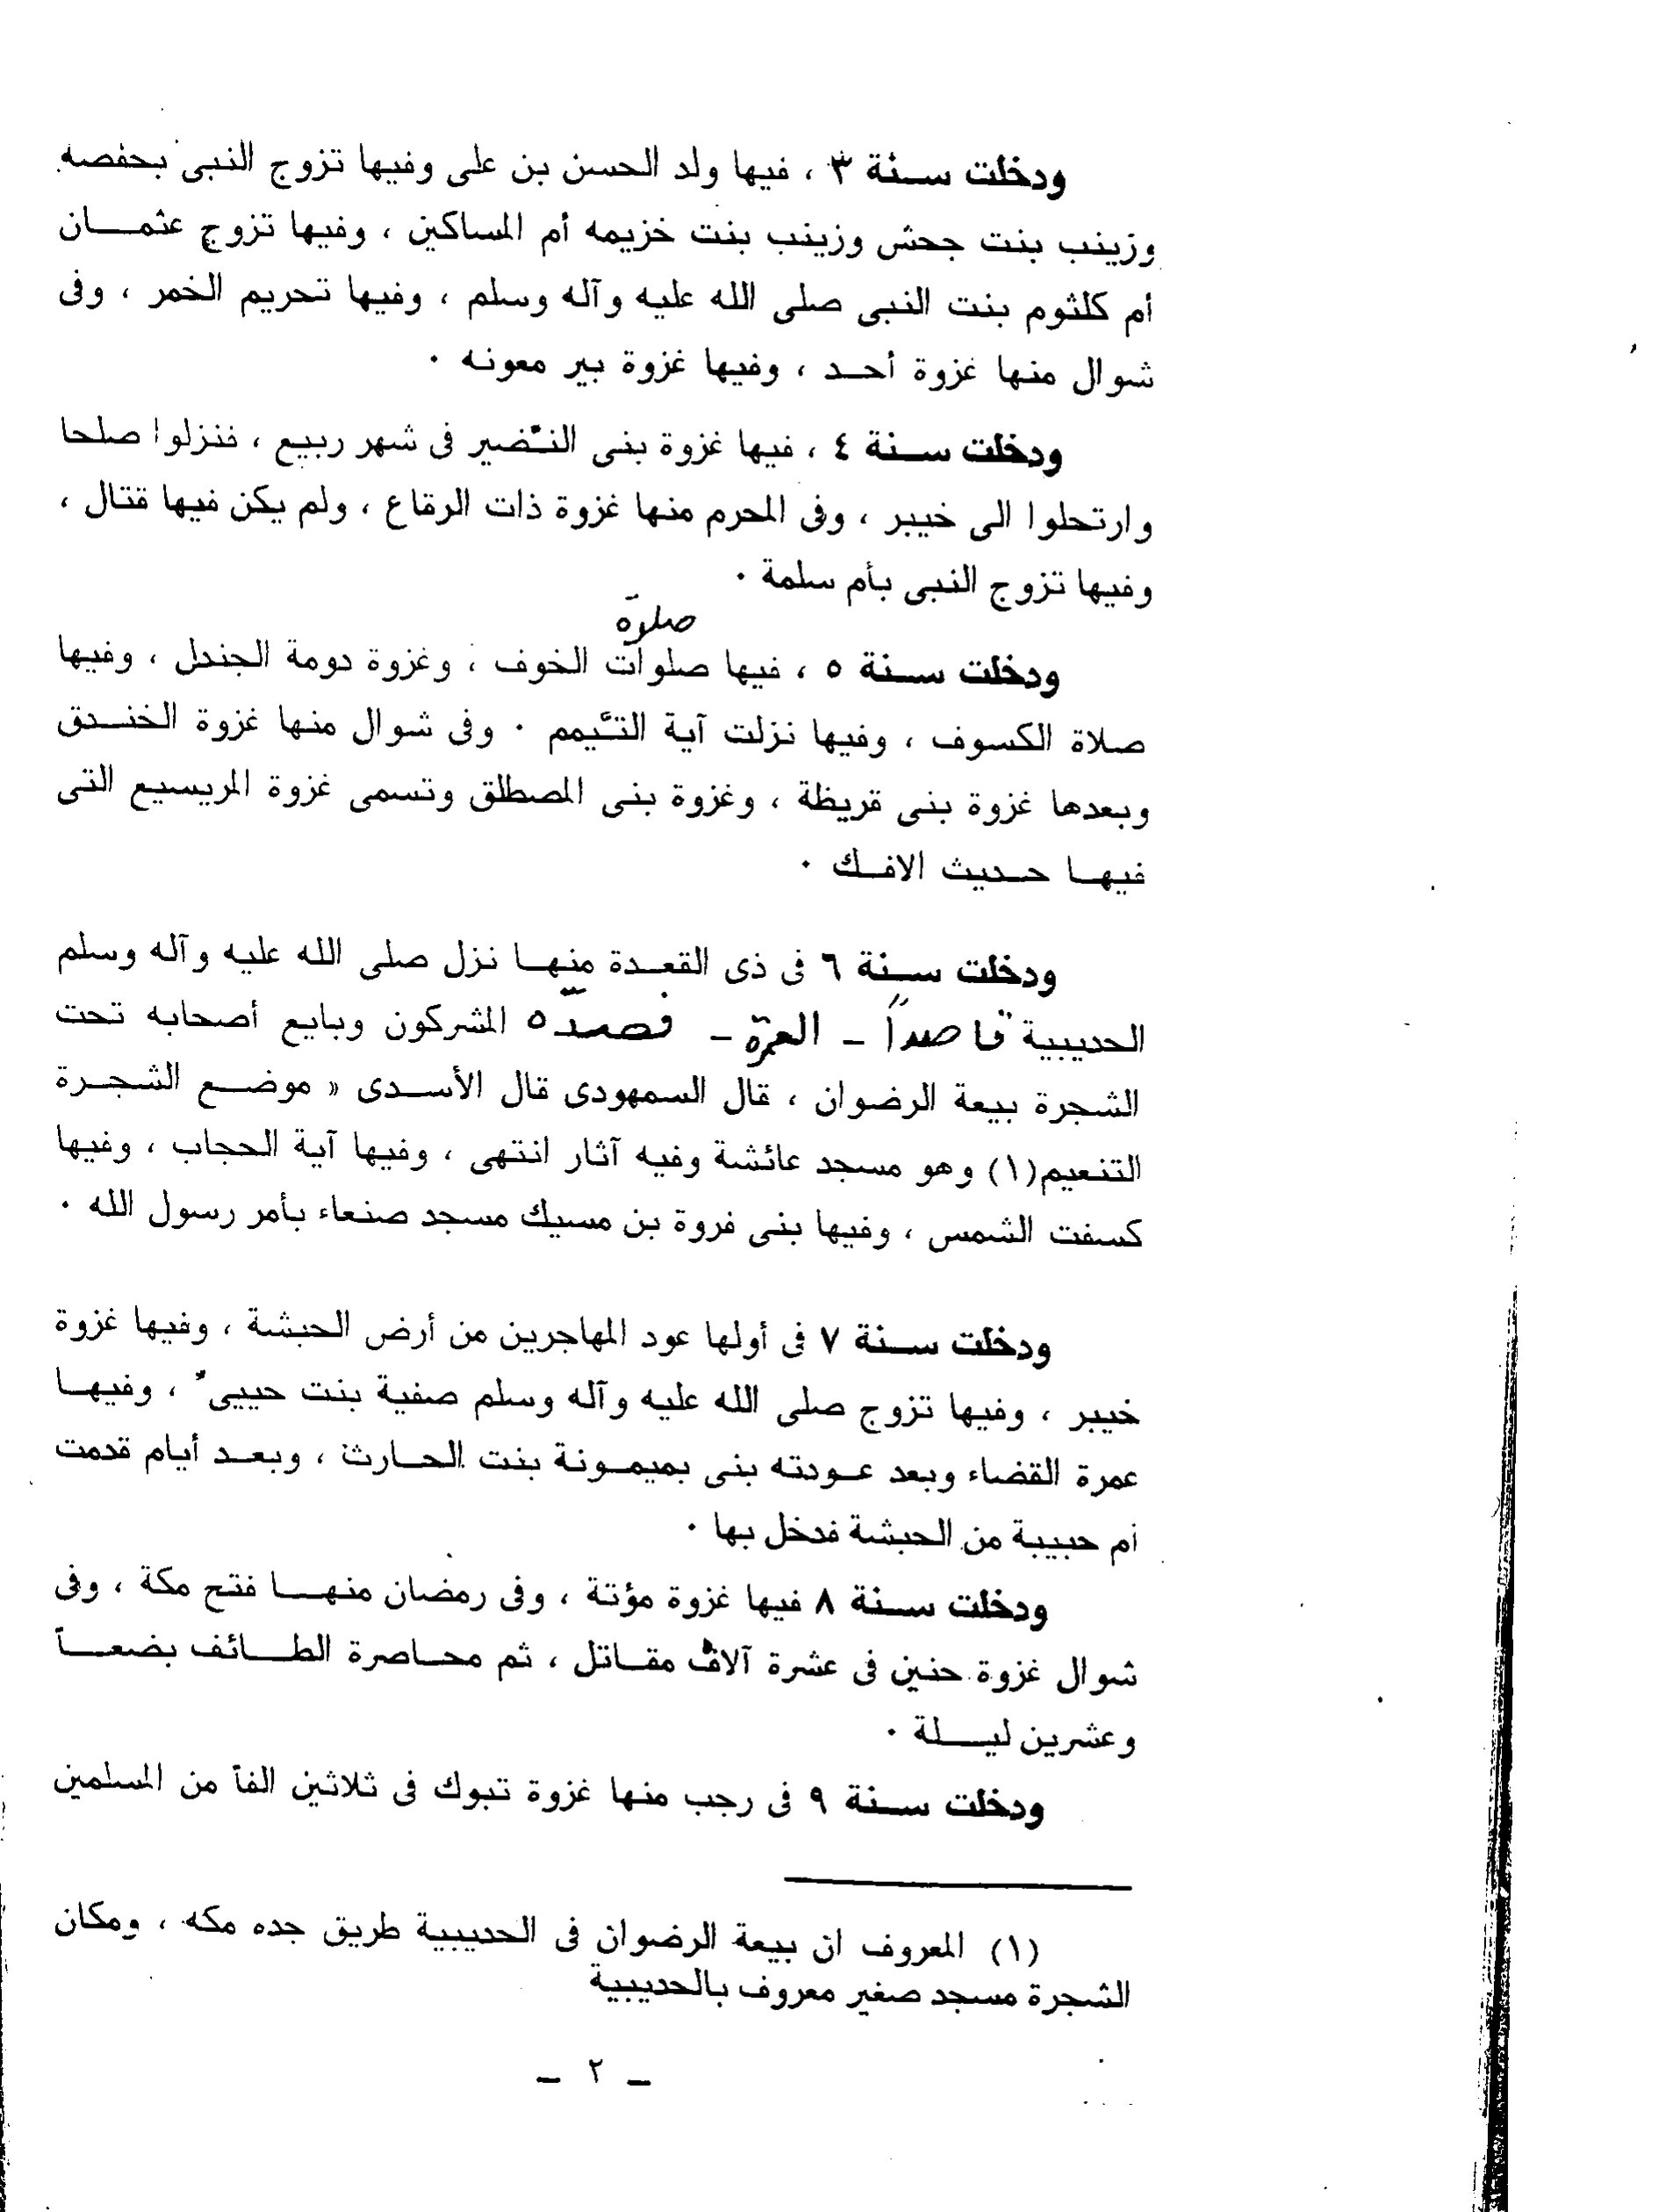 ودخلت سنة ٣ ، فيها ولد الحسن بن على وفيها تزوج النبى بحفصه
وزينب بنت جحش وزينب بنت خزيمه أم المساكين ، وفيها تزوج عثمان
أم كلثوم بنت النبى صلى الله عليه وآله وسلم ، وفيها تحريم الخمر ، وفى
شوال منها غزوة أحد ، وفيها غزوة بير معونه ٠
ودخلت سنة ٤ ، فيها غزوة بنى النضير فى شهر ربيع ، فنزلوا صلحا
وارتحلوا الى خيبر ، وفى المحرم منها غزوة ذات الرقاع ، ولم يكن فيها قتال ،
وفيها تزوج النبى بأم سلمة ٠
صلوة
ودخلت سنة ٥ ، فيها صلوات الخوف ، وغزوة دومة الجندل ، وفيها
صلاة الكسوف ، وفيها نزلت آية التيمم ٠ وفى شوال منها غزوة الخندق
وبعدها غزوة بنى قريظة ، وغزوة بنى المصطلق وتسمى غزوة المريسيع التى
فيها حديث الافك ٠
ودخلت سنة ٦ فى ذى القعدة منها نزل صلى الله عليه وآله وسلم
الحديبية قاصداً - العمرة - فصده المشركون وبايع أصحابه تحت
الشجرة بيعة الرضوان ، قال السمهودى قال الأسدى « موضع الشجرة
التنعيم(١) وهو مسجد عائشة وفيه آثار انتهى ، وفيها آية الحجاب ، وفيها
كسفت الشمس ، وفيها بنى فروة بن مسيك مسجد صنعاء بأمر رسول الله ٠
ودخلت سنة ٧ فى أولها عود المهاجرين من أرض الحبشة ، وفيها غزوة
خيبر ، وفيها تزوج صلى الله عليه وآله وسلم صفية بنت حييى ، وفيها
عمرة القضاء وبعد عودته بنى بميمونة بنت الحارث ، وبعد أيام قدمت
أم حبيبة من الحبشة فدخل بها ٠
ودخلت سنة ٨ فيها غزوة مؤتة ، وفى رمضان منها فتح مكة ، وفى
شوال غزوة حنين فى عشرة آلاف مقاتل ، ثم محاصرة الطائف بضعاً
وعشرين ليلة ٠
ودخلت سنة ٩ فى رجب منها غزوة تبوك فى ثلاثين الفاً من المسلمين
(١) المعروف ان بيعة الرضوان فى الحديبية طريق جده مكه ، ومكان
الشجرة مسجد صغير معروف بالحديبية
- ٢ -